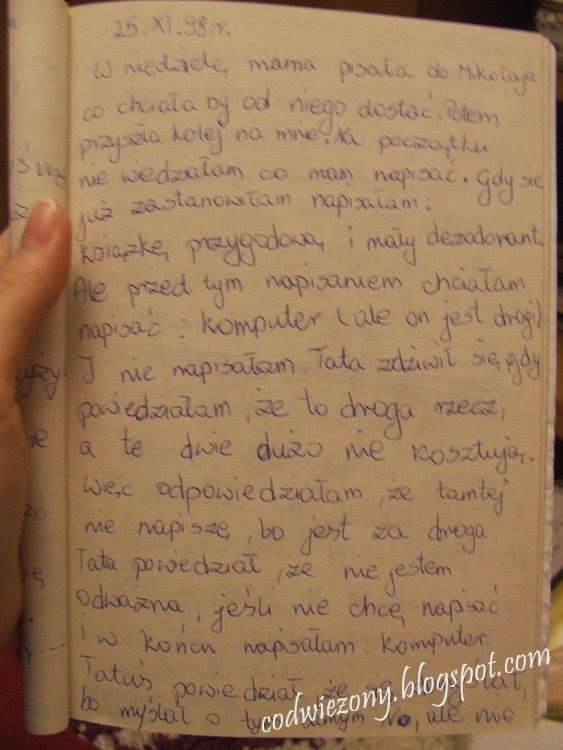 25.XI.98r.
W niedzielę mama pisała do Mikołaja
co chciała by od niego dostać. Potem
przyszła kolej na mnie. Na początku
nie wiedziałam co mam napisać. Gdy się
już zastanowiłam napisałam:
książkę przygodową i mały dezodorant.
Ale przed tym napisaniem chciałam
napisać: komputer (ale on jest drogi)
I nie napisałam. Tata zdziwił się, gdy
powiedziałam, że to droga rzecz,
a te dwie dużo nie kosztują.
Więc odpowiedziałam, że tamtej
nie napiszę, bo jest za droga.
Tata powiedział, że nie jestem
odważna, jeśli nie chcę napisać
i w końcu napisałam: komputer.
Tatuś powiedział, że
bo myślał o tym samym, ale nie
codwiezony.blogspot.com